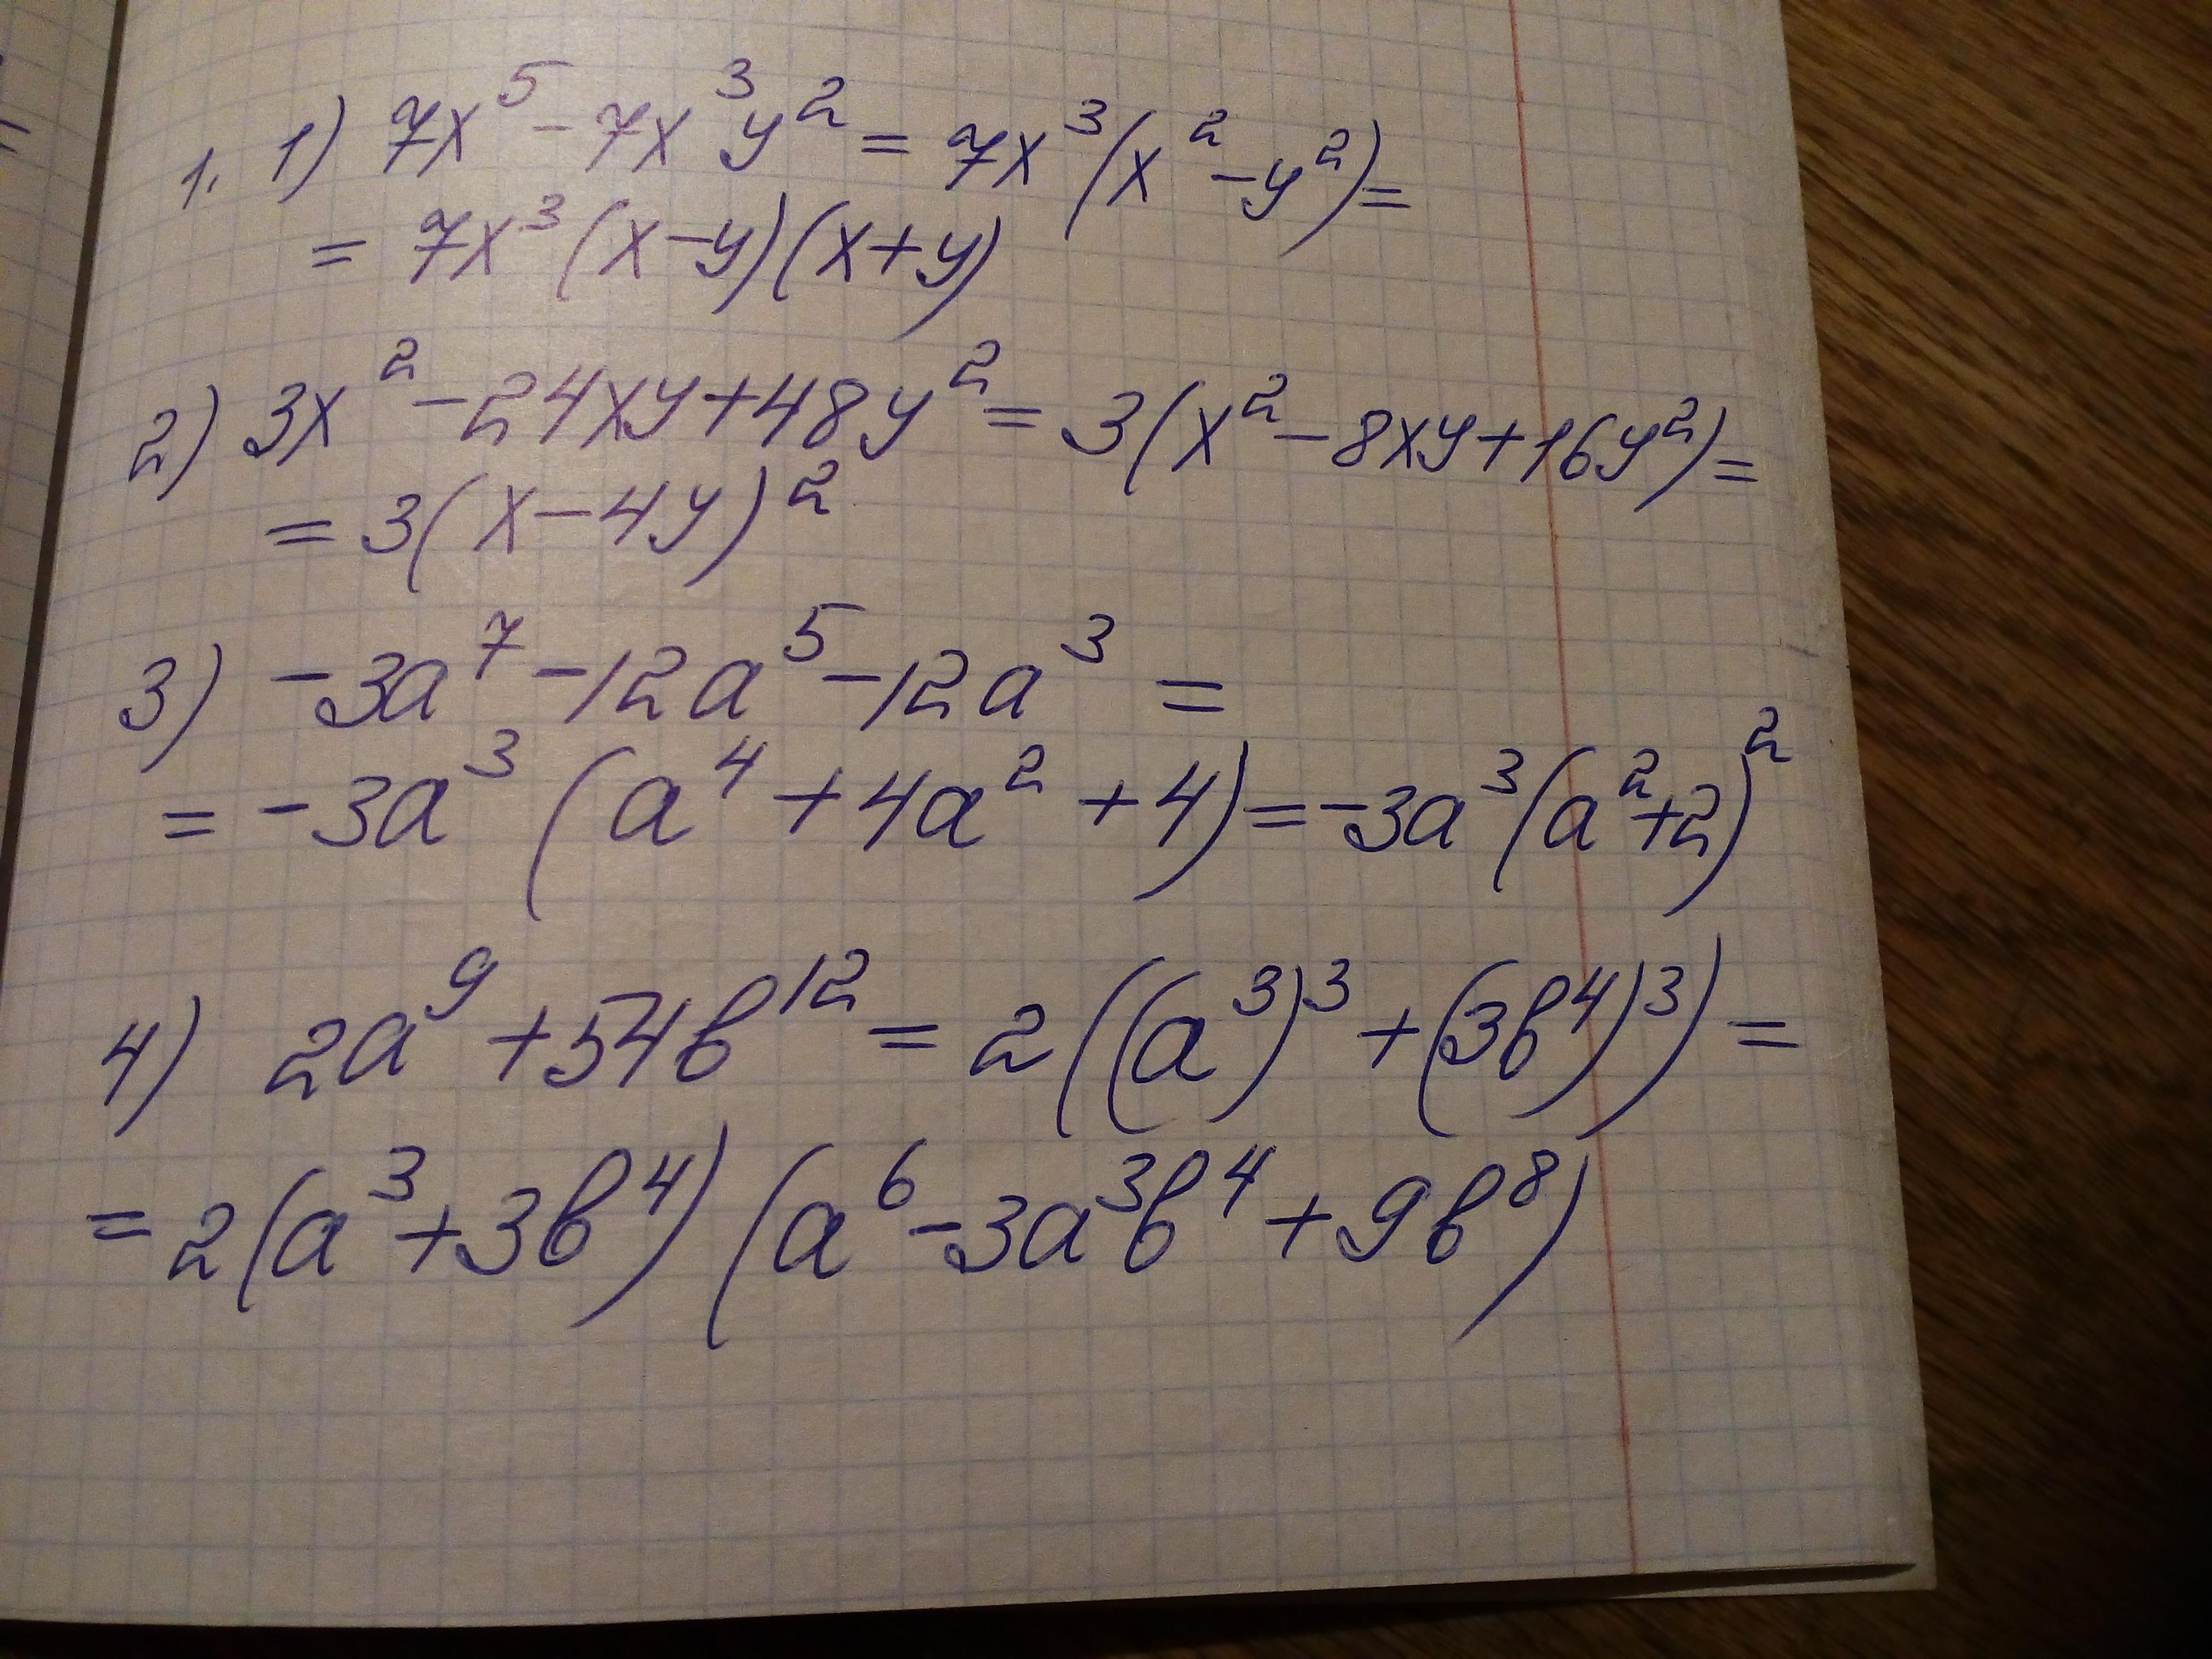 1. 1) 7x⁵ - 7x³y² = 7x³(x² - y²) =
= 7x³(x - y)(x + y)
2) 3x² - 24xy + 48y² = 3(x² - 8xy + 16y²) =
= 3(x - 4y)²
3) -3a⁷ - 12a⁵ - 12a³ =
= -3a³(a⁴ + 4a² + 4) = -3a³(a² + 2)²
4) 2a⁹ + 54b¹² = 2((a³)³ + (3b⁴)³) =
= 2(a³ + 3b⁴)(a⁶ - 3a³b⁴ + 9b⁸)